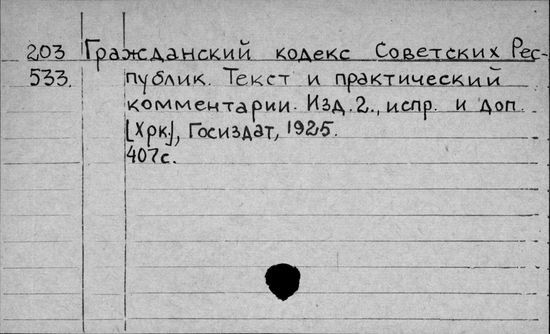 203 Гражданский кодекс Советских Рес-
533. публик. Текст и практический
комментарии. Изд. 2., испр. и доп.
[Хрк.], Госиздат, 1925.
407с.